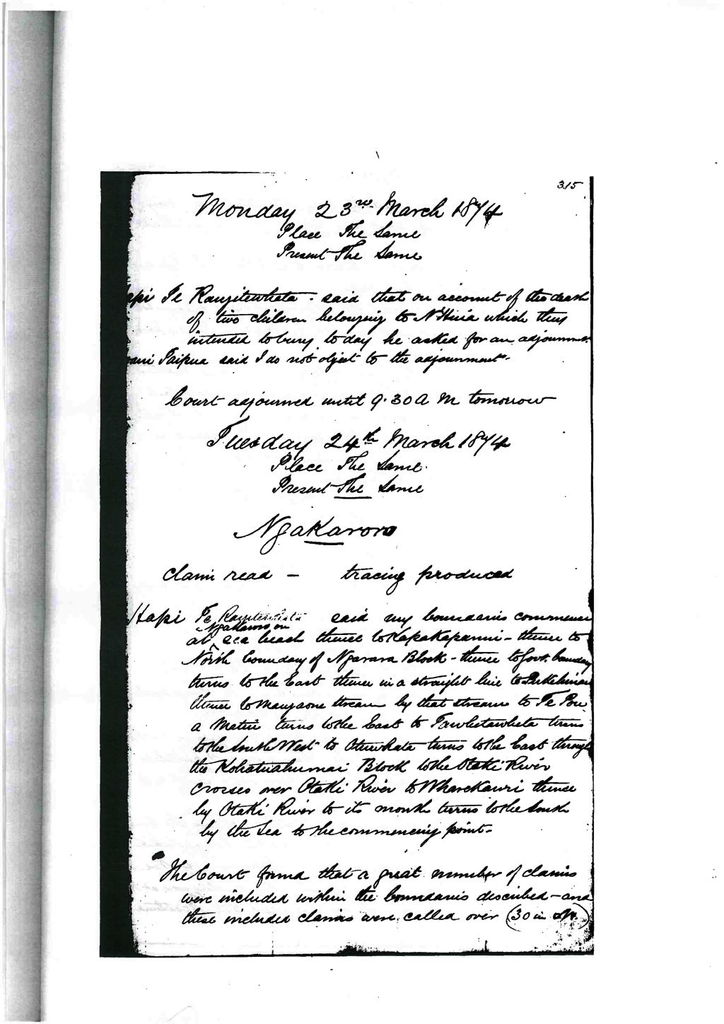 315
Monday 23rd March 1874
Place The Same
Present The Same
Hapi Te Rangitewhata - said that on account of the death
of two children belonging to N'Huia which they
intended to bury to day he asked for an adjournme
Taipua said I do not object to the adjournment -
Court adjourned until 9.30 A M tomorrow
Tuesday 24th March 1874
Place The Same
Present The Same
Ngakaroro
Claim read - tracing produced
Hapi Te Rangitewhata said my boundaries commence
Ngakaroro on
at sea beach thence to Kapakapanui - thence to
North boundary of Ngarara Block - thence to Govt. boundary
turns to the East thence in a straight line to
thence to Mangaone Stream by that stream to Te Pou
a Matu turns to the East to turns
to the South West to turns to the East through
the Kohatuahumai Block to the Otaki River
crosses over Otaki River to Wharekauri thence
by Otaki River to its mouth turns to the South
by the Sea to the commencing point -
The Court found that a great number of claims
were included within the boundaries described - and
these included claims were called over (30 in